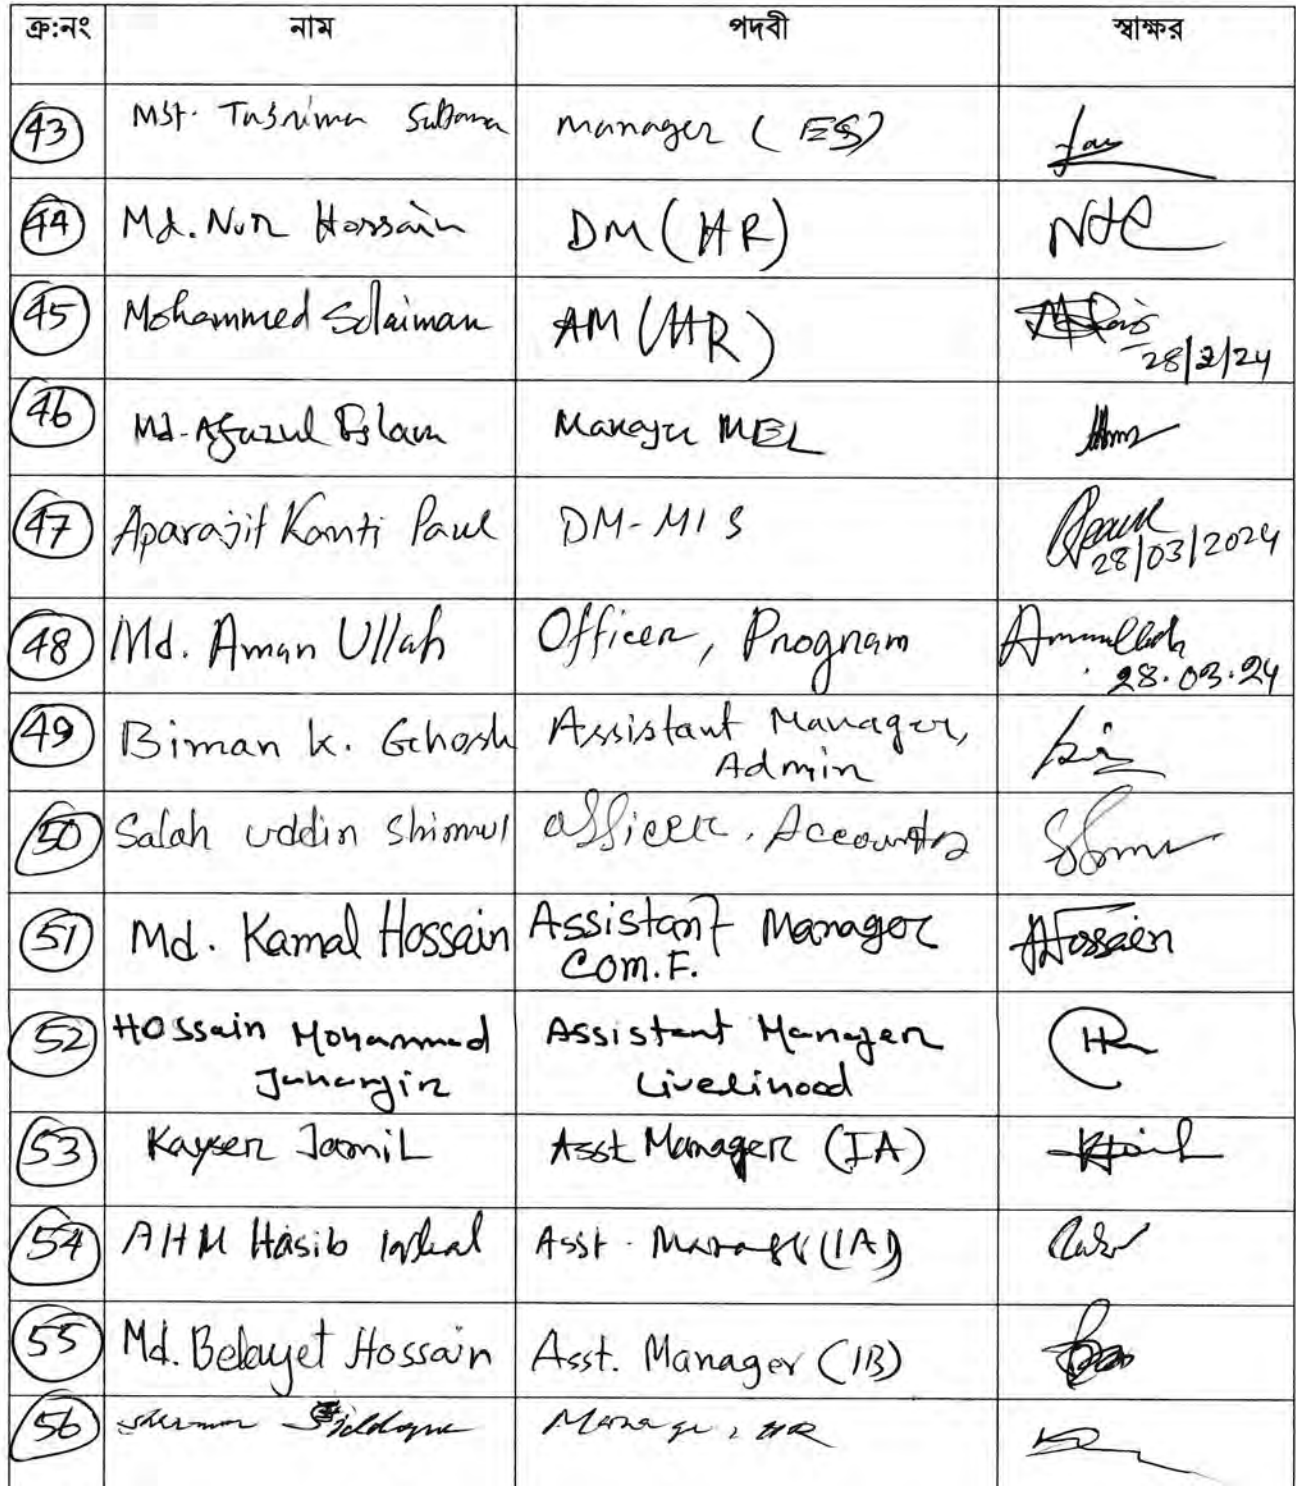 ক্র:নং নাম পদবী স্বাক্ষর
43 Mst. Tasrima Sultana Manager (ES)
44 Md. Nur Hossain DM (HR)
45 Mohammed Solaiman AM (HR)
28/3/24
46 Md. Afazul Islam Manager MEL
47 Aparajit Kanti Paul DM-MIS Apaul
28/03/2024
48 Md. Aman Ullah Officer, Program Amanullah
28.03.24
49 Biman K. Ghosh Assistant Manager,
Admin
50 Salah uddin Shimul Officer, Accounts
51 Md. Kamal Hossain Assistant Manager Hossain
Com.F.
52 Hossain Mohammad Assistant Manager
Jahangir Livelihood
53 Kayser Jamil Asst Manager (IA)
54 AHM Hasib Iqbal Asst. Manager (IA)
55 Md. Belayet Hossain Asst. Manager (IB)
56 Manager, HR